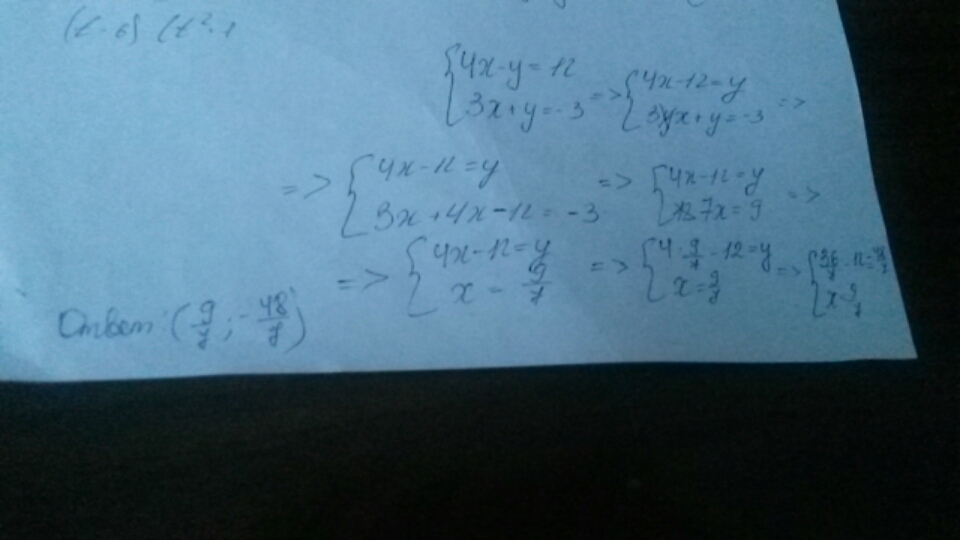 {4x-y=12
{3x+y=-3 => {4x-12=y
{3x+y=-3 =>
=> {4x-12=y
{3x+4x-12=-3 => {4x-12=y
{7x=9 =>
=> {4x-12=y
{x=9/7 => {4·9/7-12=y
{x=9/7 => {36/7-12=
{x=9/7
Ответ: (9/7; -48/7)